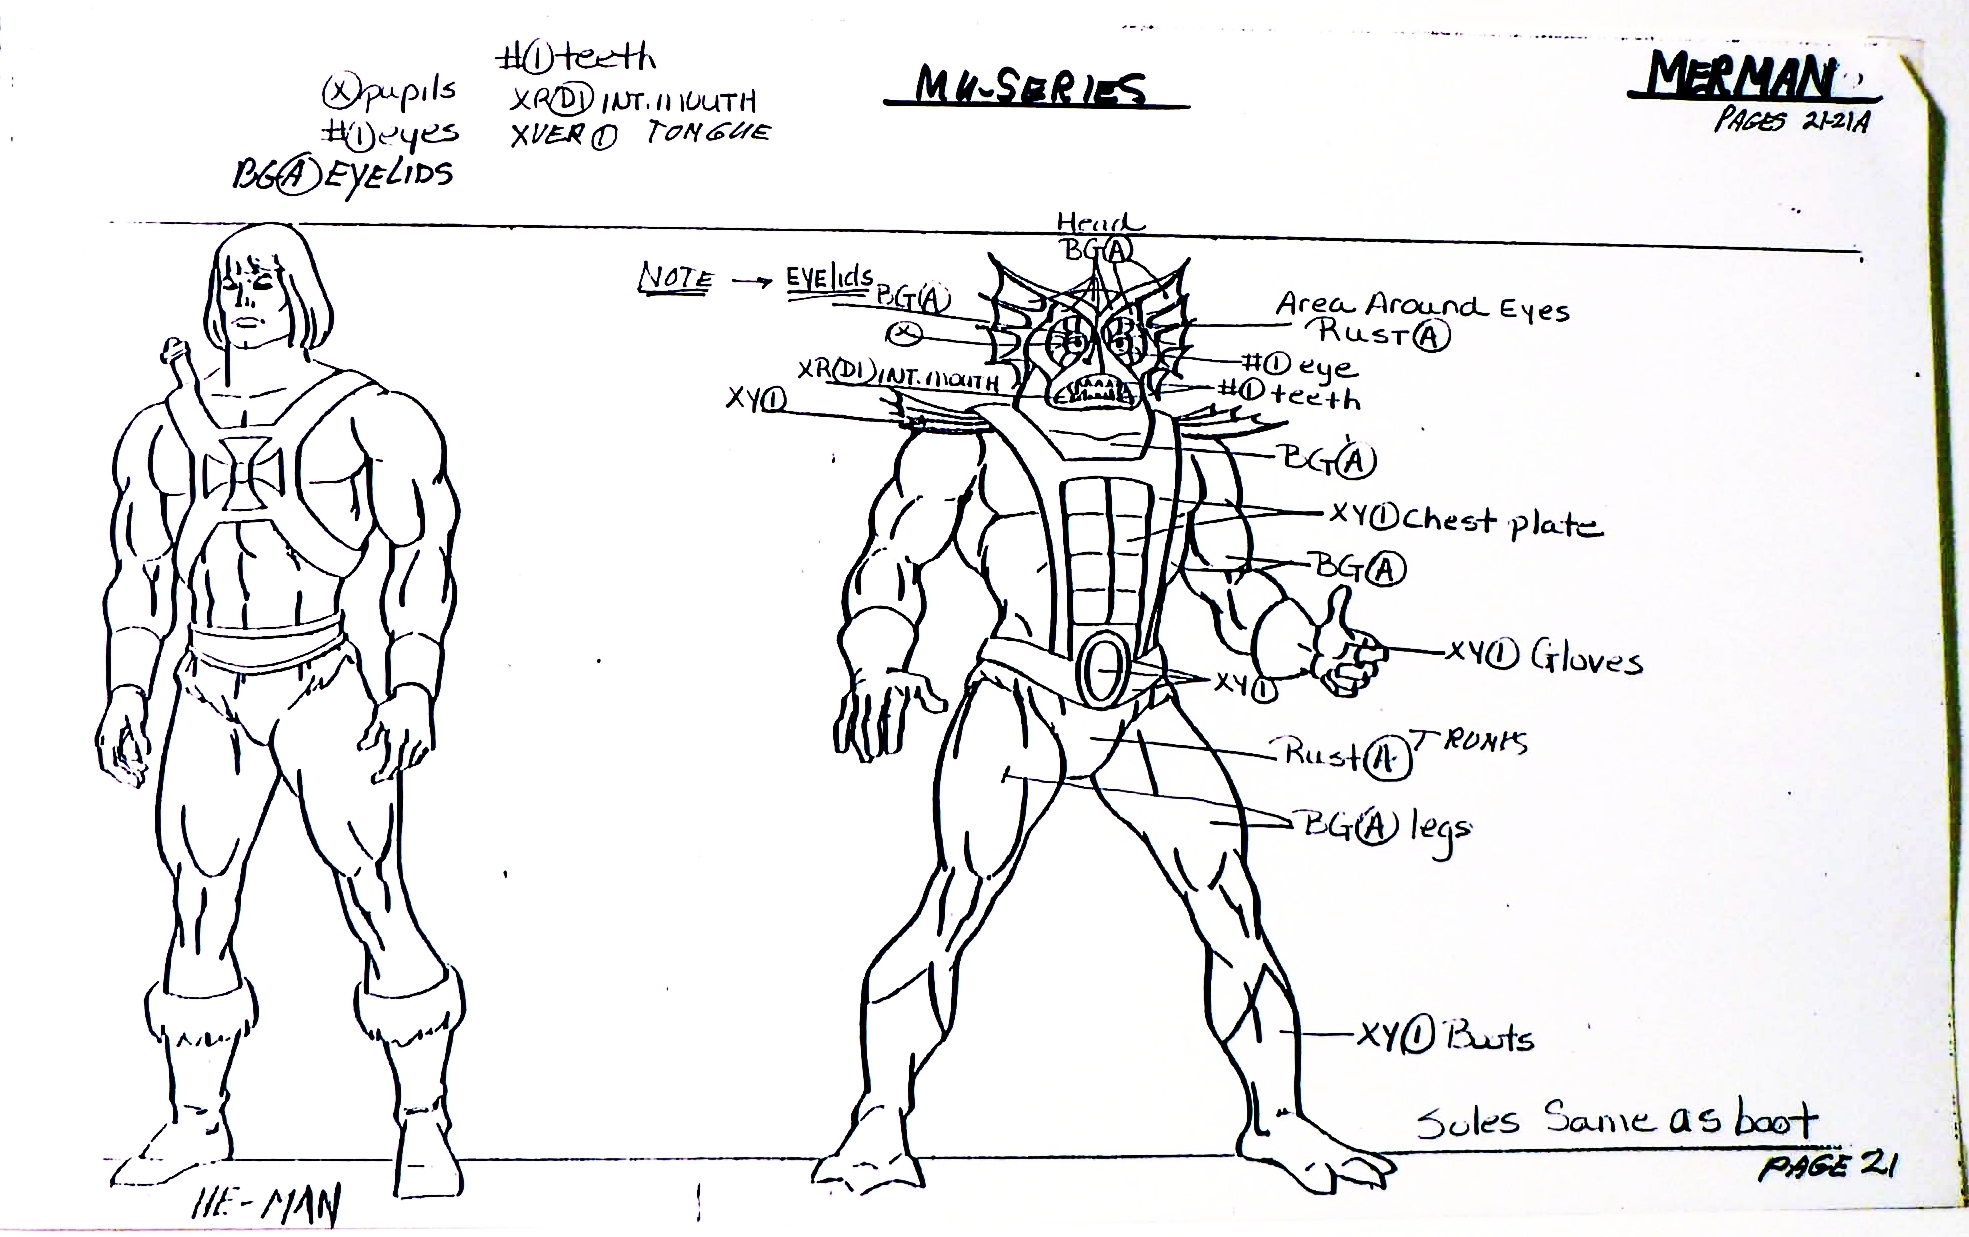 #① teeth
Ⓧ pupils
XR(D1) INT. MOUTH
#① eyes
XVER ① TONGUE
BGⒶ EYELIDS
MU-SERIES
MERMAN
PAGES 21-21A
Head
BGⒶ
NOTE → EYElids
BG(A)
Ⓧ
XR(D1) INT. MOUTH
XY①
Area Around Eyes
RustⒶ
#① eye
#① teeth
BGⒶ
XY① Chest plate
BGⒶ
XY① Gloves
XY①
RustⒶ TRUNKS
BGⒶ legs
XY① Boots
Soles Same as boot
PAGE 21
HE-MAN